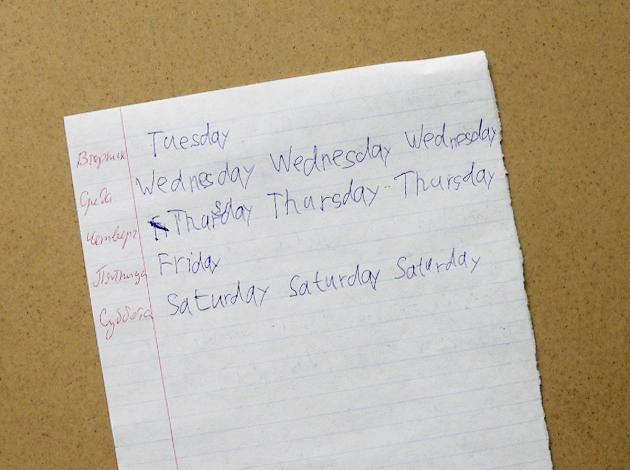 Вторник Tuesday
Среда Wednesday Wednesday Wednesday
Четверг Tharsday Thursday - Thursday
Пятница Friday
Суббота Saturday Saturday Saturday